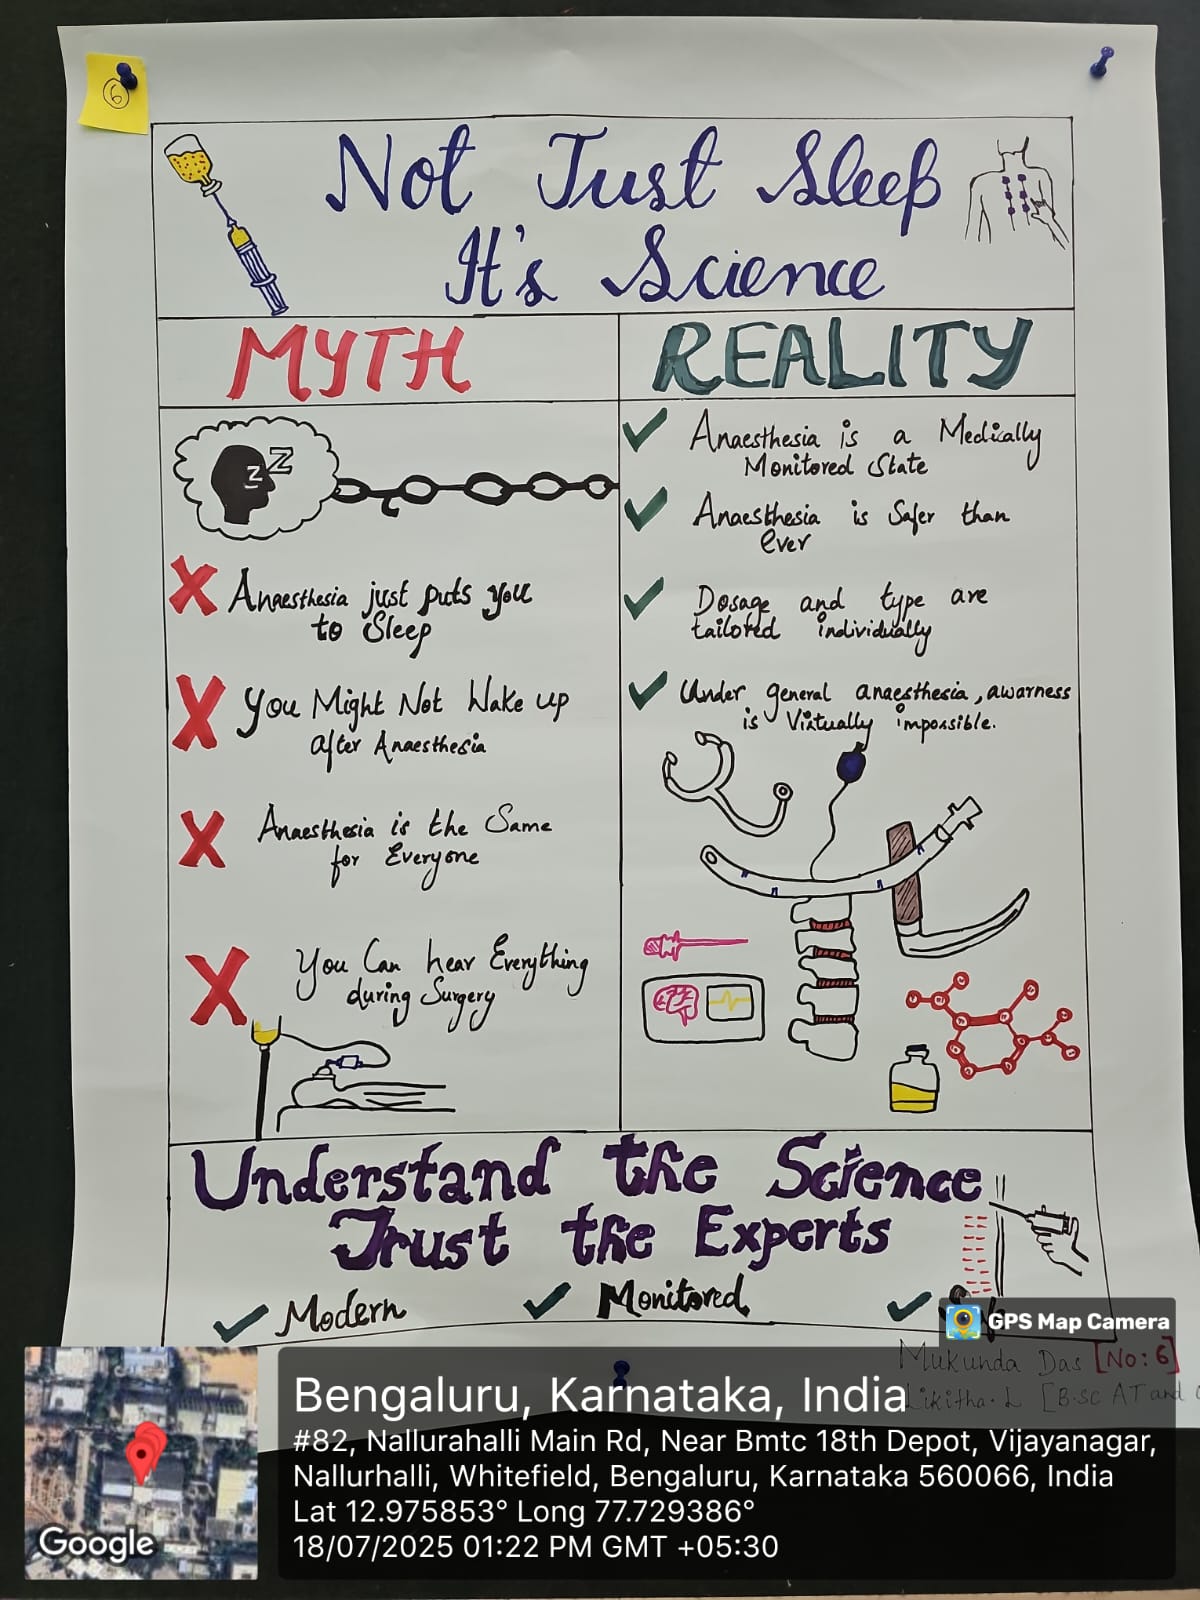 6
Not Just Sleep
It's Science
MYTH
REALITY
Z Z
X Anaesthesia just puts you
to Sleep
X You Might Not Wake up
after Anaesthesia
X Anaesthesia is the Same
for Everyone
X You Can hear Everything
during Surgery
✓ Anaesthesia is a Medically
Monitored State
✓ Anaesthesia is Safer than
Ever
✓ Dosage and type are
tailored individually
✓ Under general anaesthesia, awarness
is Virtually impossible.
Understand the Science
Trust the Experts
✓ Modern ✓ Monitored ✓
GPS Map Camera
Mukunda Das [No: 6]
Likitha. L [B.Sc AT and
Bengaluru, Karnataka, India
#82, Nallurahalli Main Rd, Near Bmtc 18th Depot, Vijayanagar,
Nallurhalli, Whitefield, Bengaluru, Karnataka 560066, India
Lat 12.975853° Long 77.729386°
18/07/2025 01:22 PM GMT +05:30
Google